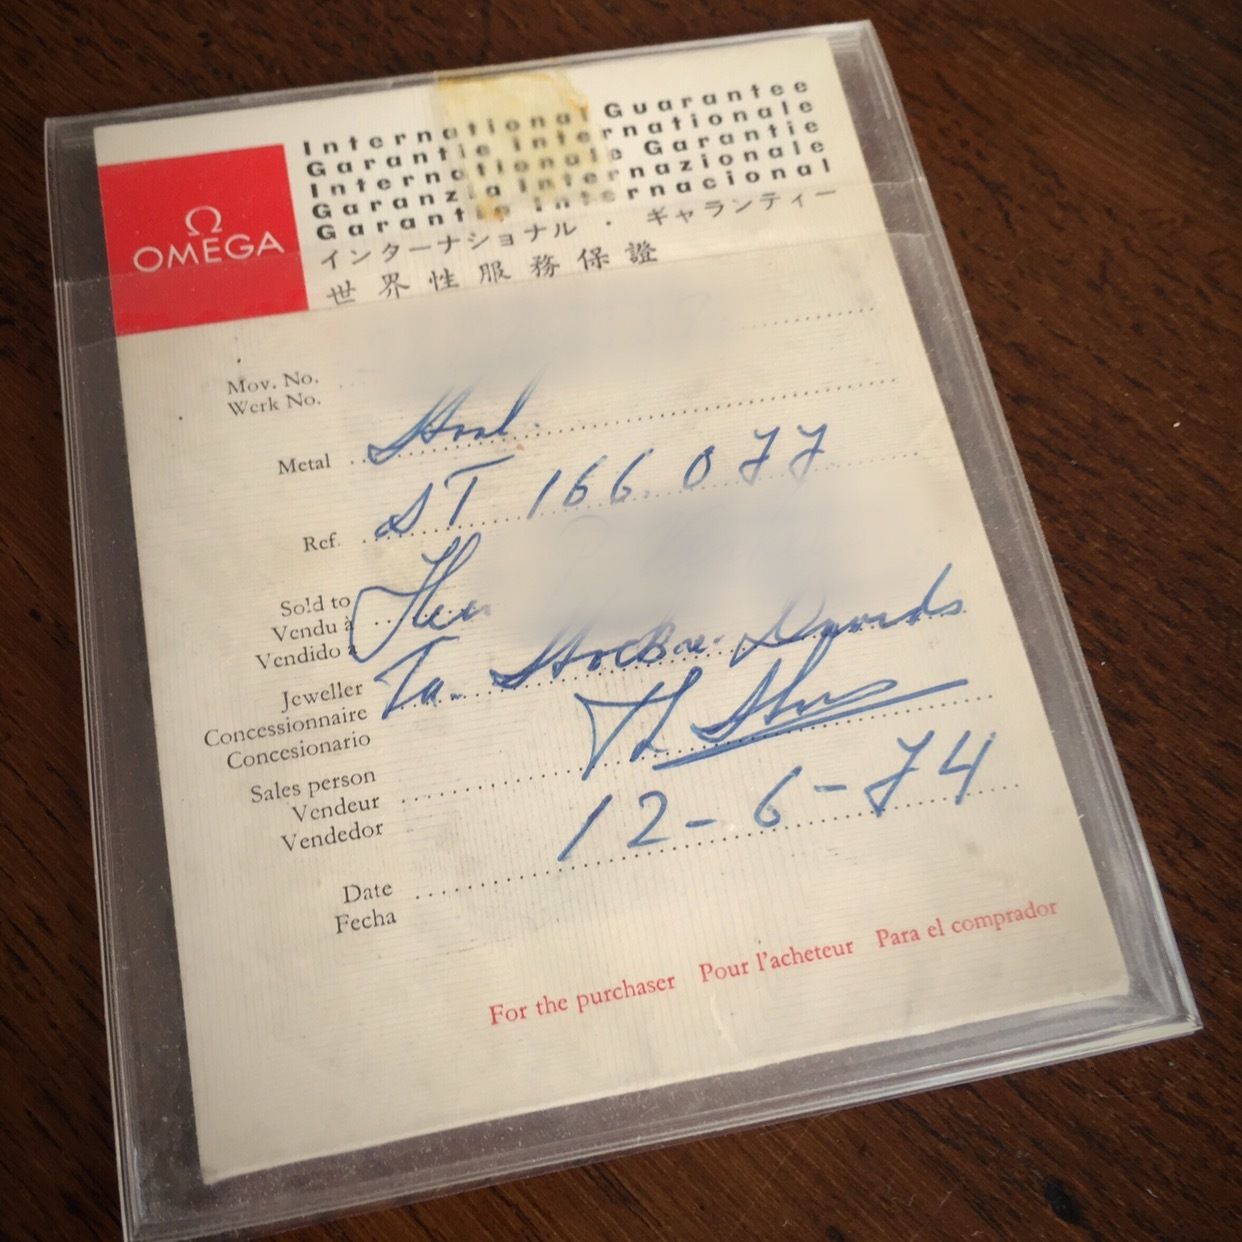 International Guarantee
Garantie internationale
Internationale Garantie
Garanzia internazionale
Garantía internacional
インターナショナル・ギャランティー
世界性服務保證
Ω
OMEGA
Mov. No.
Werk No.
Metal Staal.
Ref. ST 166.077
Sold to
Vendu à
Vendido a
Jeweller
Concessionnaire
Concesionario
Sales person
Vendeur
Vendedor
Date 12-6-74
Fecha
For the purchaser Pour l'acheteur Para el comprador